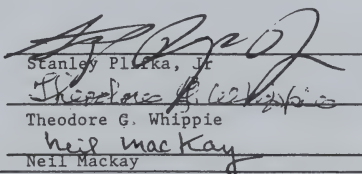 Stanley Plifka, Jr
Theodore G. Whippie
Theodore G. Whippie
Neil Mackay
Neil Mackay